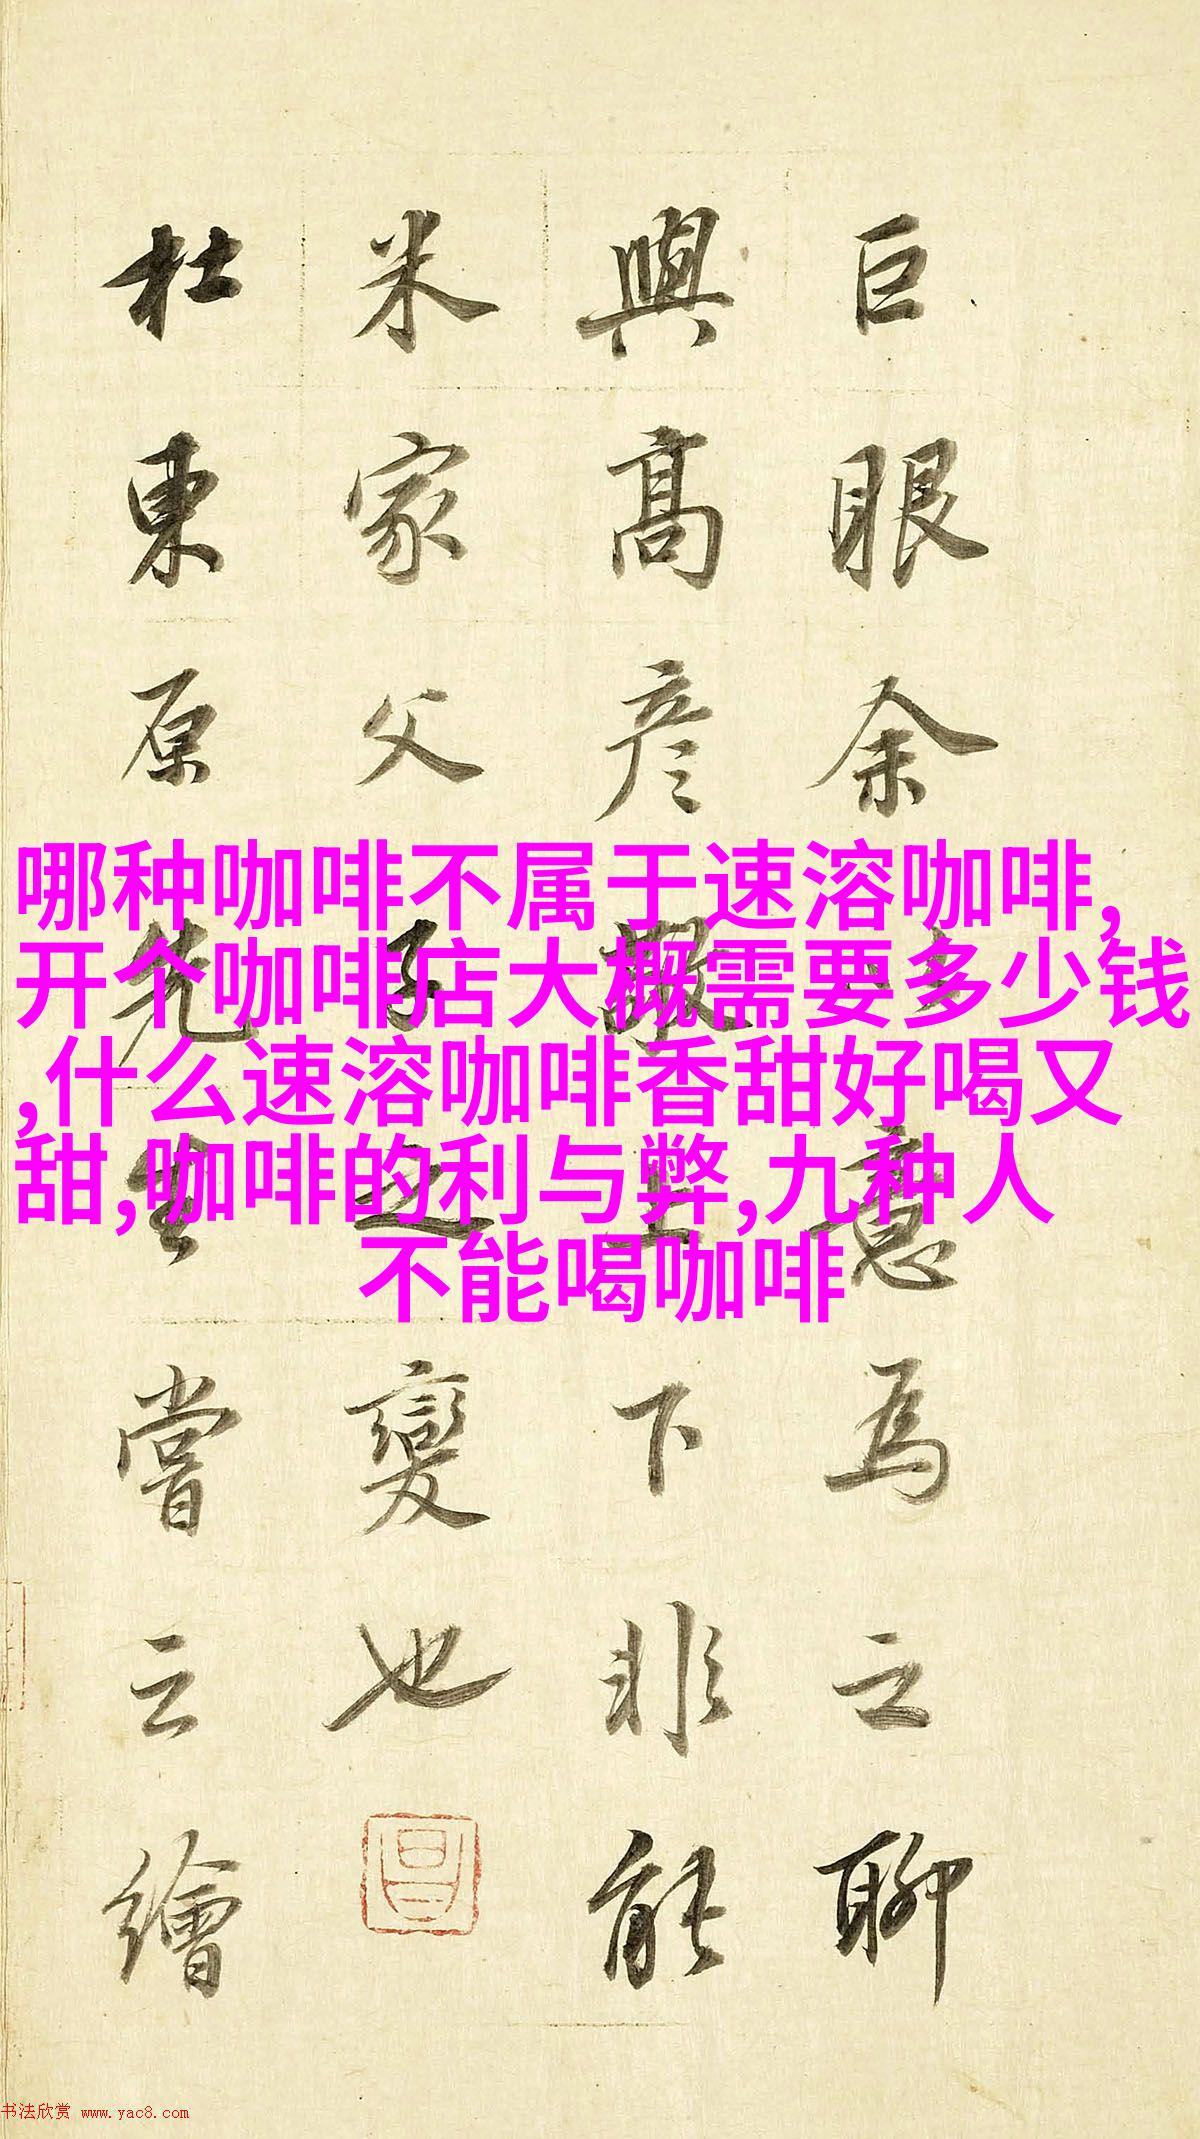 巨眼余意為之聊
與高彥敬上下非能
米家父子之變也
杜東原先生嘗云繪
哪种咖啡不属于速溶咖啡,
开个咖啡店大概需要多少钱
,什么速溶咖啡香甜好喝又
甜,咖啡的利与弊,九种人
不能喝咖啡
书法欣赏 www.yac8.com